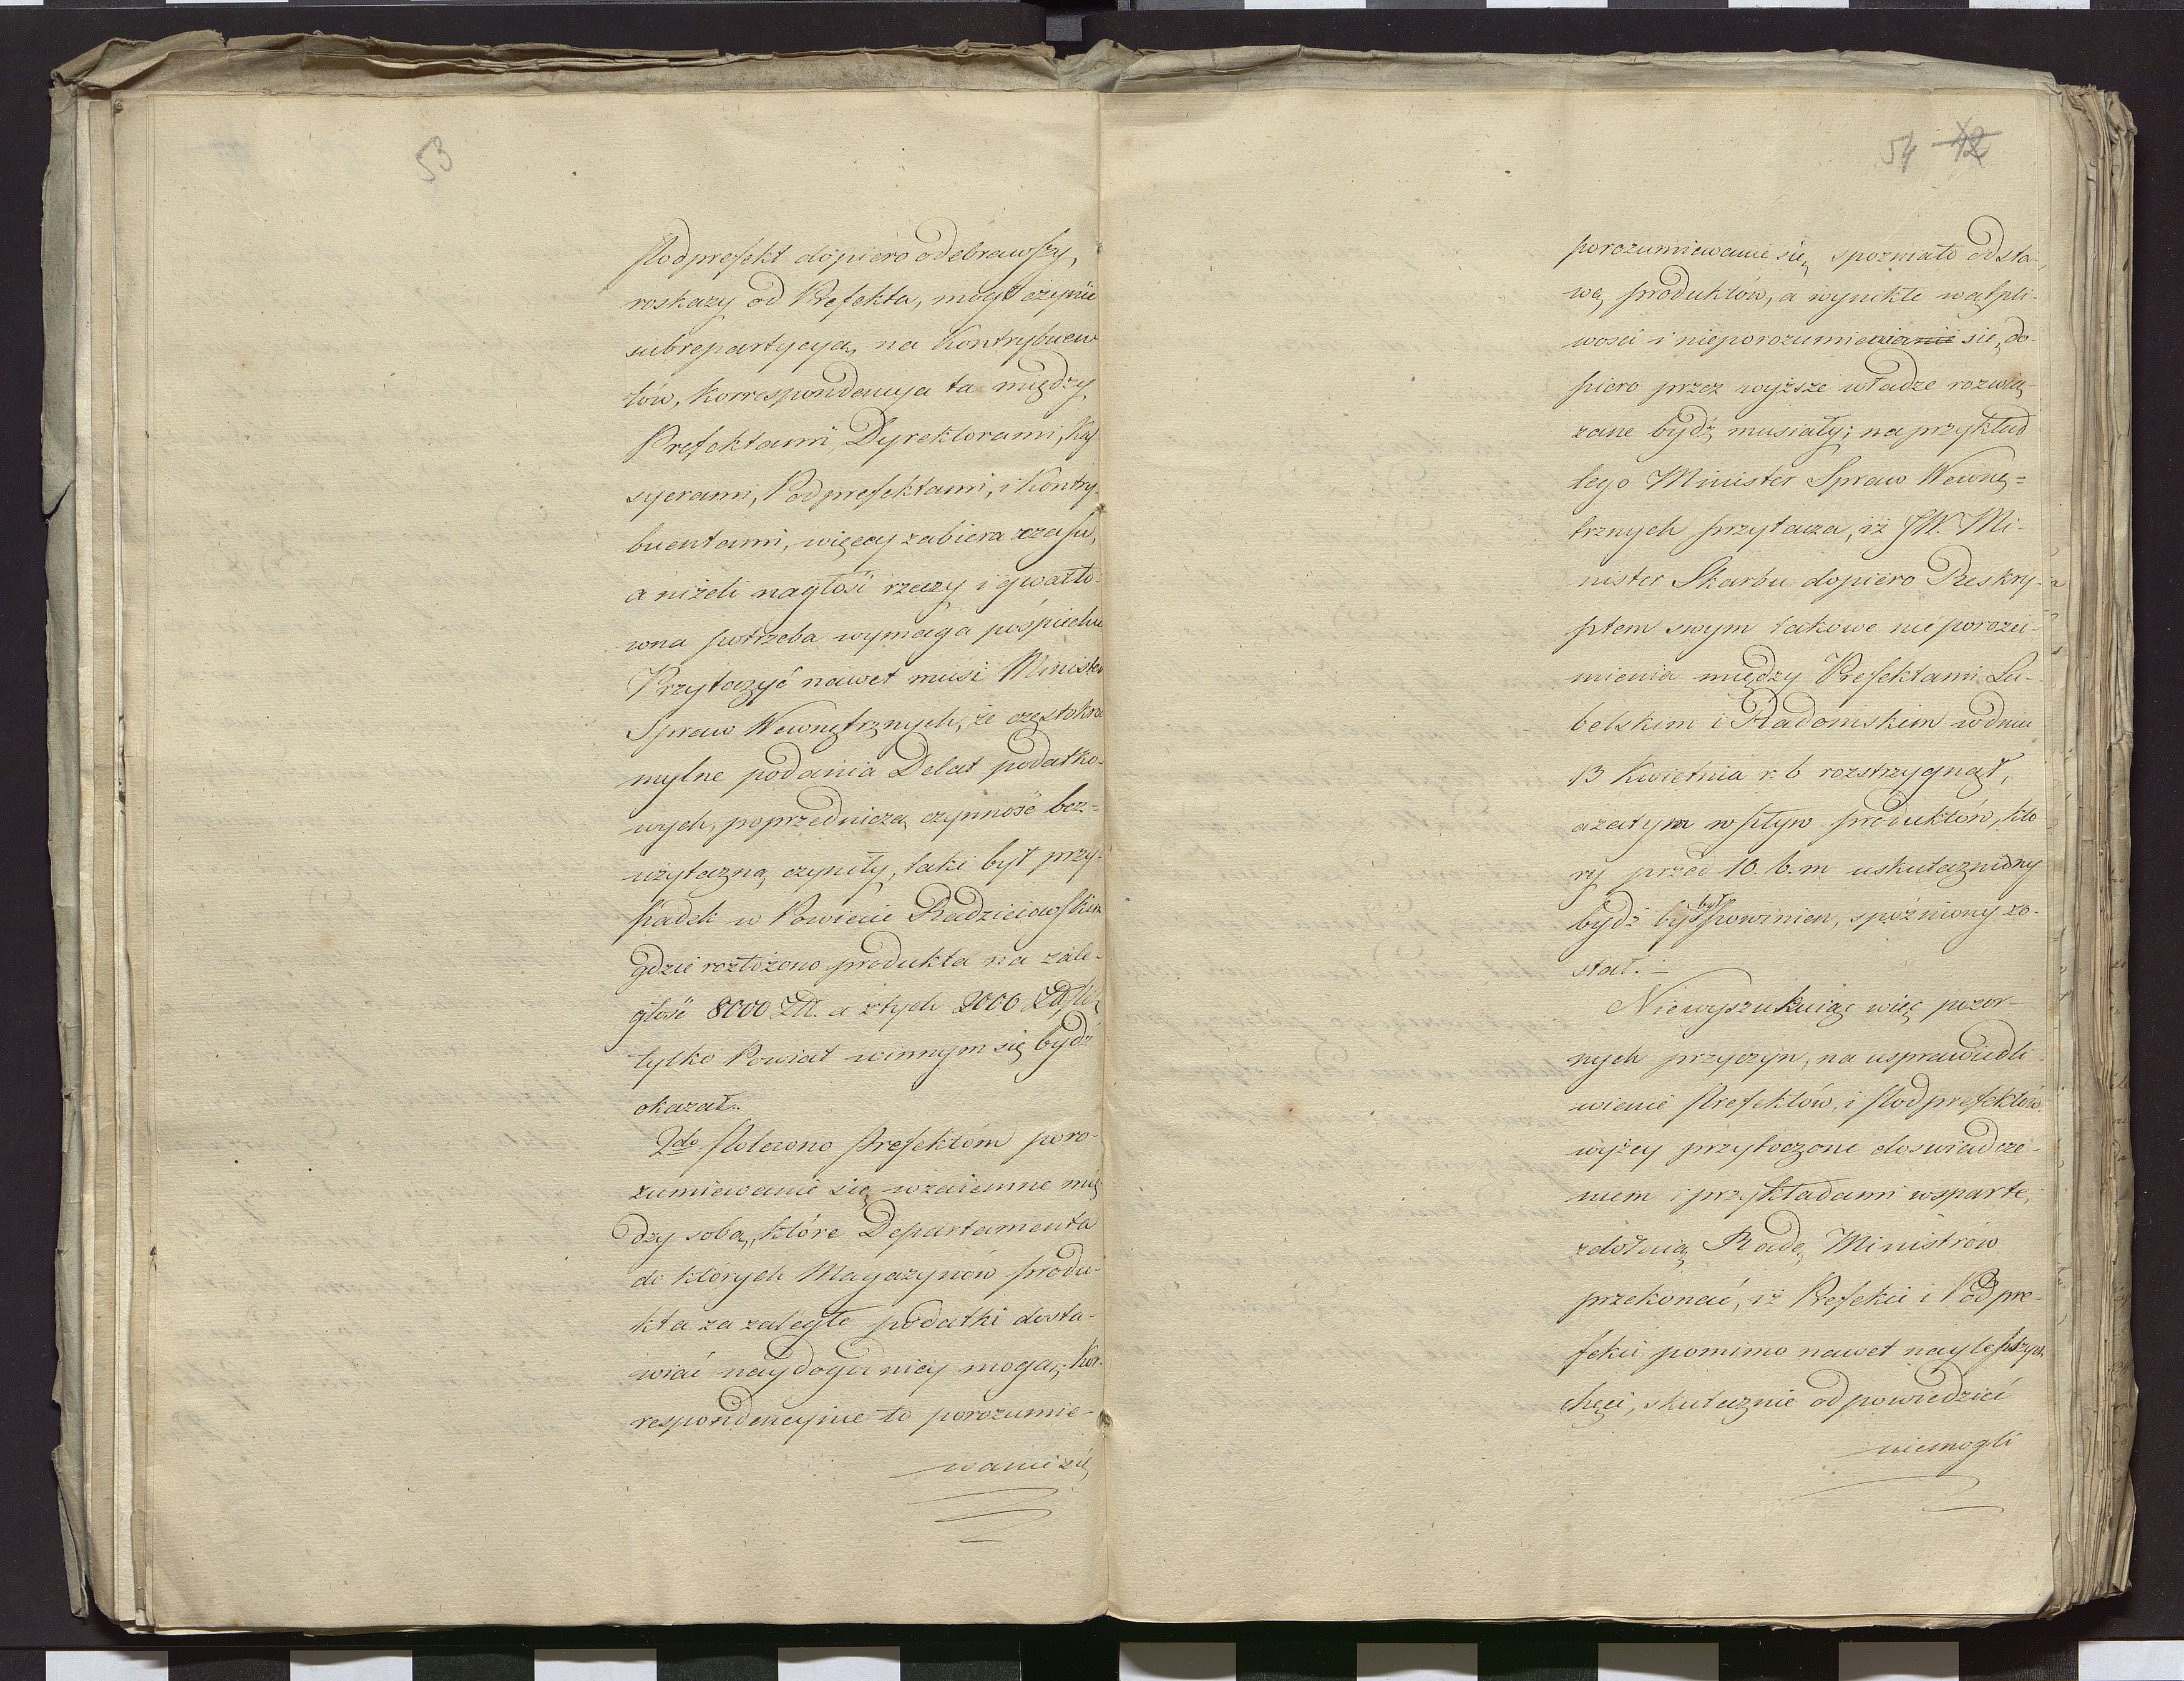 53
Podprefekt dopiero odebrawszy,
roskazy od Prefekta, mógł czynić
subrepartycyą, na Kontrybuen
tów, Korrespondencya ta między
Prefektami, Dyrektorami, Kas
syerami, Podprefektami, i Kontry-
buentami, więcey zabiera czasu,
a niżeli nagłość rzeczy i gwałto-
wna potrzeba wymaga pośpiechu
Przytoczyć nawet musi Minister
Spraw Wewnętrznych, że częstokro
mylne podania Delat podatko-
wych, poprzedniczą czynność bez-
użyteczną czyniły, taki był przy-
padek w Powiecie Radzieiowskim
gdzie rozłożono produkta na zale-
głość 8000 Złł. a z tych 2000
tylko Powiat winnym się bydź
okazał.
2do Polecono Prefektom poro-
zumiewanie się wzaiemne mię
dzy sobą, które Departamenta
do których Magazynów produ-
kta za zaległe podatki dosta-
wiać naydogodniey mogą; Kor-
respondencyjne to porozumie-
wanie się
54 12
porozumiewanie się, spoźniało odsta-
wę produktów, a wynikłe wątpli-
wości i nieporozumienia się, do-
piero przez wyższe władze rozwią-
zane bydź musiały; na przykład
tego Minister Spraw Wewnę=
trznych przytacza, iż JW. Mi-
nister Skarbu dopiero Reskry-
ptem swym takowe nieporozu-
mienia między Prefektami Lu-
belskim i Radomskim w dniu
13 Kwietnia r. b rozstrzygnął,
azatym wpływ produktów, któ
ry przed 10. b. m uskuteczniony
bydź był powinien, spoźniony zo-
stał. –
Niewyszukuiąc więc pozor-
nych przyczyn, na usprawiedli-
wienie Prefektów, i Podprefektów
wyżey przytoczone doswiadcze-
niem i przykładami wsparte,
zdołaią Radę Ministrów
przekonać, iż Prefekci i Podpre-
fekci pomimo nawet naylepszych
chęci, skutecznie odpowiedzieć
niemogli